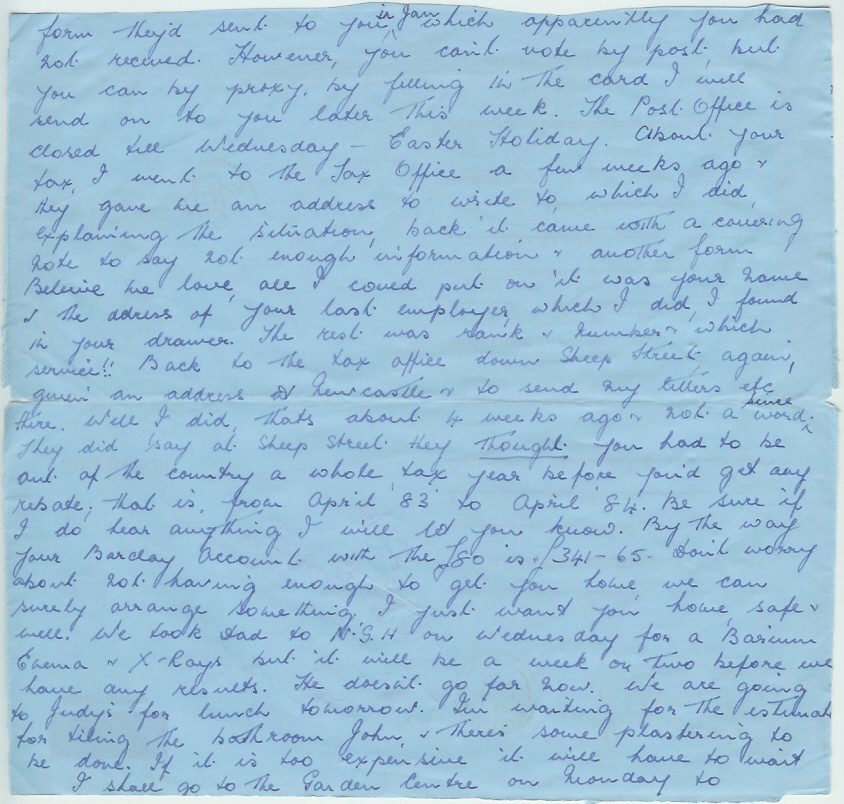 form they'd sent to you in Jan which apparently you had
not recieved. However, you can't vote by post, but
you can by proxy, by filling in the card I will
send on to you later this week. The Post Office is
closed till Wednesday – Easter Holiday. About your
tax, I went to the Tax Office a few weeks ago &
they gave me an address to write to, which I did,
explaining the situation, back it came with a covering
note to say not enough information & another form
Believe me love, all I coued put on it was your name
& the adress of your last employer, which I did, I found
in your drawer. The rest was rank & number & which
service!! Back to the tax office down Sheep Street again,
given an address at Newcastle & to send my letters etc
there. Well I did, thats about 4 weeks ago & not a word since.
They did say at Sheep Street they thought you had to be
out of the country a whole tax year before you'd get any
rebate, that is, from April '83 to April '84. Be sure if
I do hear anything I will let you know. By the way
your Barclay Account with the £80 is £341-65. Don't worry
about not having enough to get you home, we can
surely arrange something, I just want you home, safe &
well. We took Dad to N.G.H on Wednesday for a Barium
Enema & X-Rays but it will be a week or two before we
have any results. He doesn't go far now. We are going
to Judy's for lunch tomorrow. I'm waiting for the estimate
for tiling the bathroom John, & there's some plastering to
be done. If it is too expensive it will have to wait
I shall go to the Garden Centre on Monday to